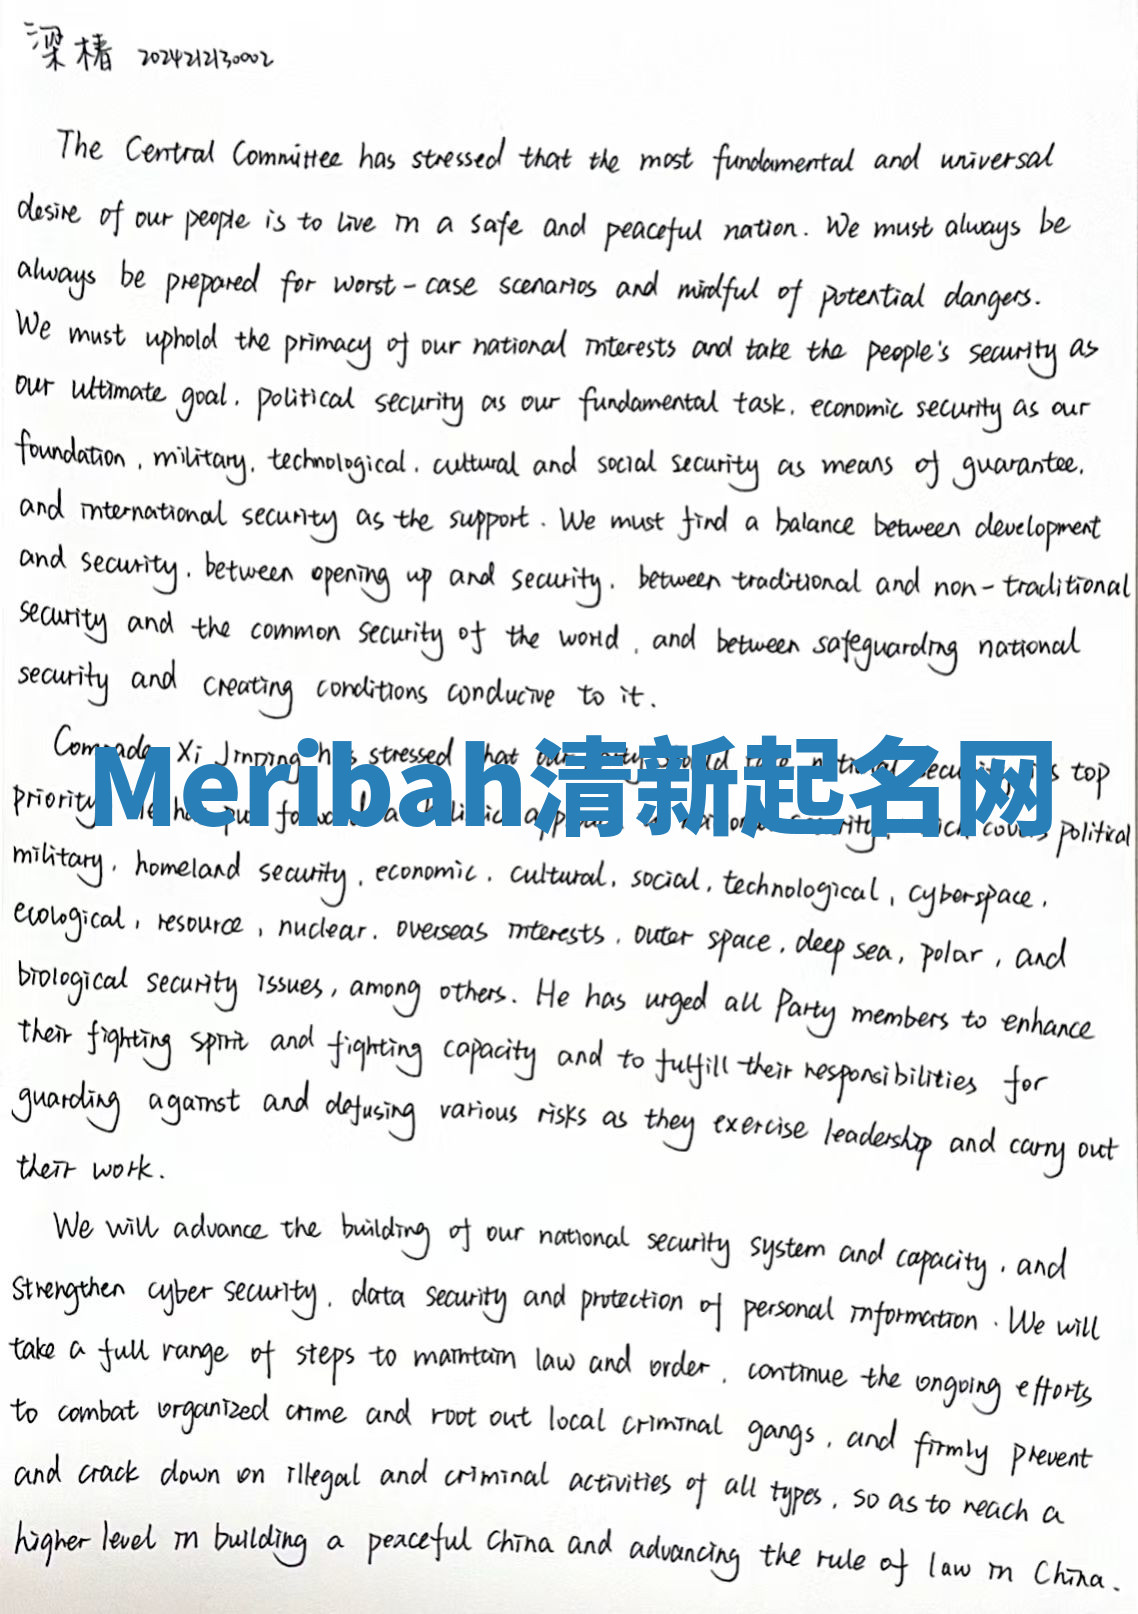 梁椿 2024212130002
The Central Committee has stressed that the most fundamental and universal
desire of our people is to live in a safe and peaceful nation. We must always be
always be prepared for worst-case scenarios and mindful of potential dangers.
We must uphold the primacy of our national interests and take the people's security as
our ultimate goal, political security as our fundamental task, economic security as our
foundation, military, technological, cultural and social security as means of guarantee,
and international security as the support. We must find a balance between development
and security, between opening up and security, between traditional and non-traditional
security and the common security of the world, and between safeguarding national
security and creating conditions conducive to it.
Comrade Xi Jinping has stressed that our top
Meribah清新起名网
priority political
military, homeland security, economic, cultural, social, technological, cyberspace,
ecological, resource, nuclear, overseas interests, outer space, deep sea, polar, and
biological security issues, among others. He has urged all Party members to enhance
their fighting spirit and fighting capacity and to fulfill their responsibilities for
guarding against and defusing various risks as they exercise leadership and carry out
their work.
We will advance the building of our national security system and capacity, and
strengthen cyber security, data security and protection of personal information. We will
take a full range of steps to maintain law and order, continue the ongoing efforts
to combat organized crime and root out local criminal gangs, and firmly prevent
and crack down on illegal and criminal activities of all types, so as to reach a
higher level in building a peaceful China and advancing the rule of law in China.